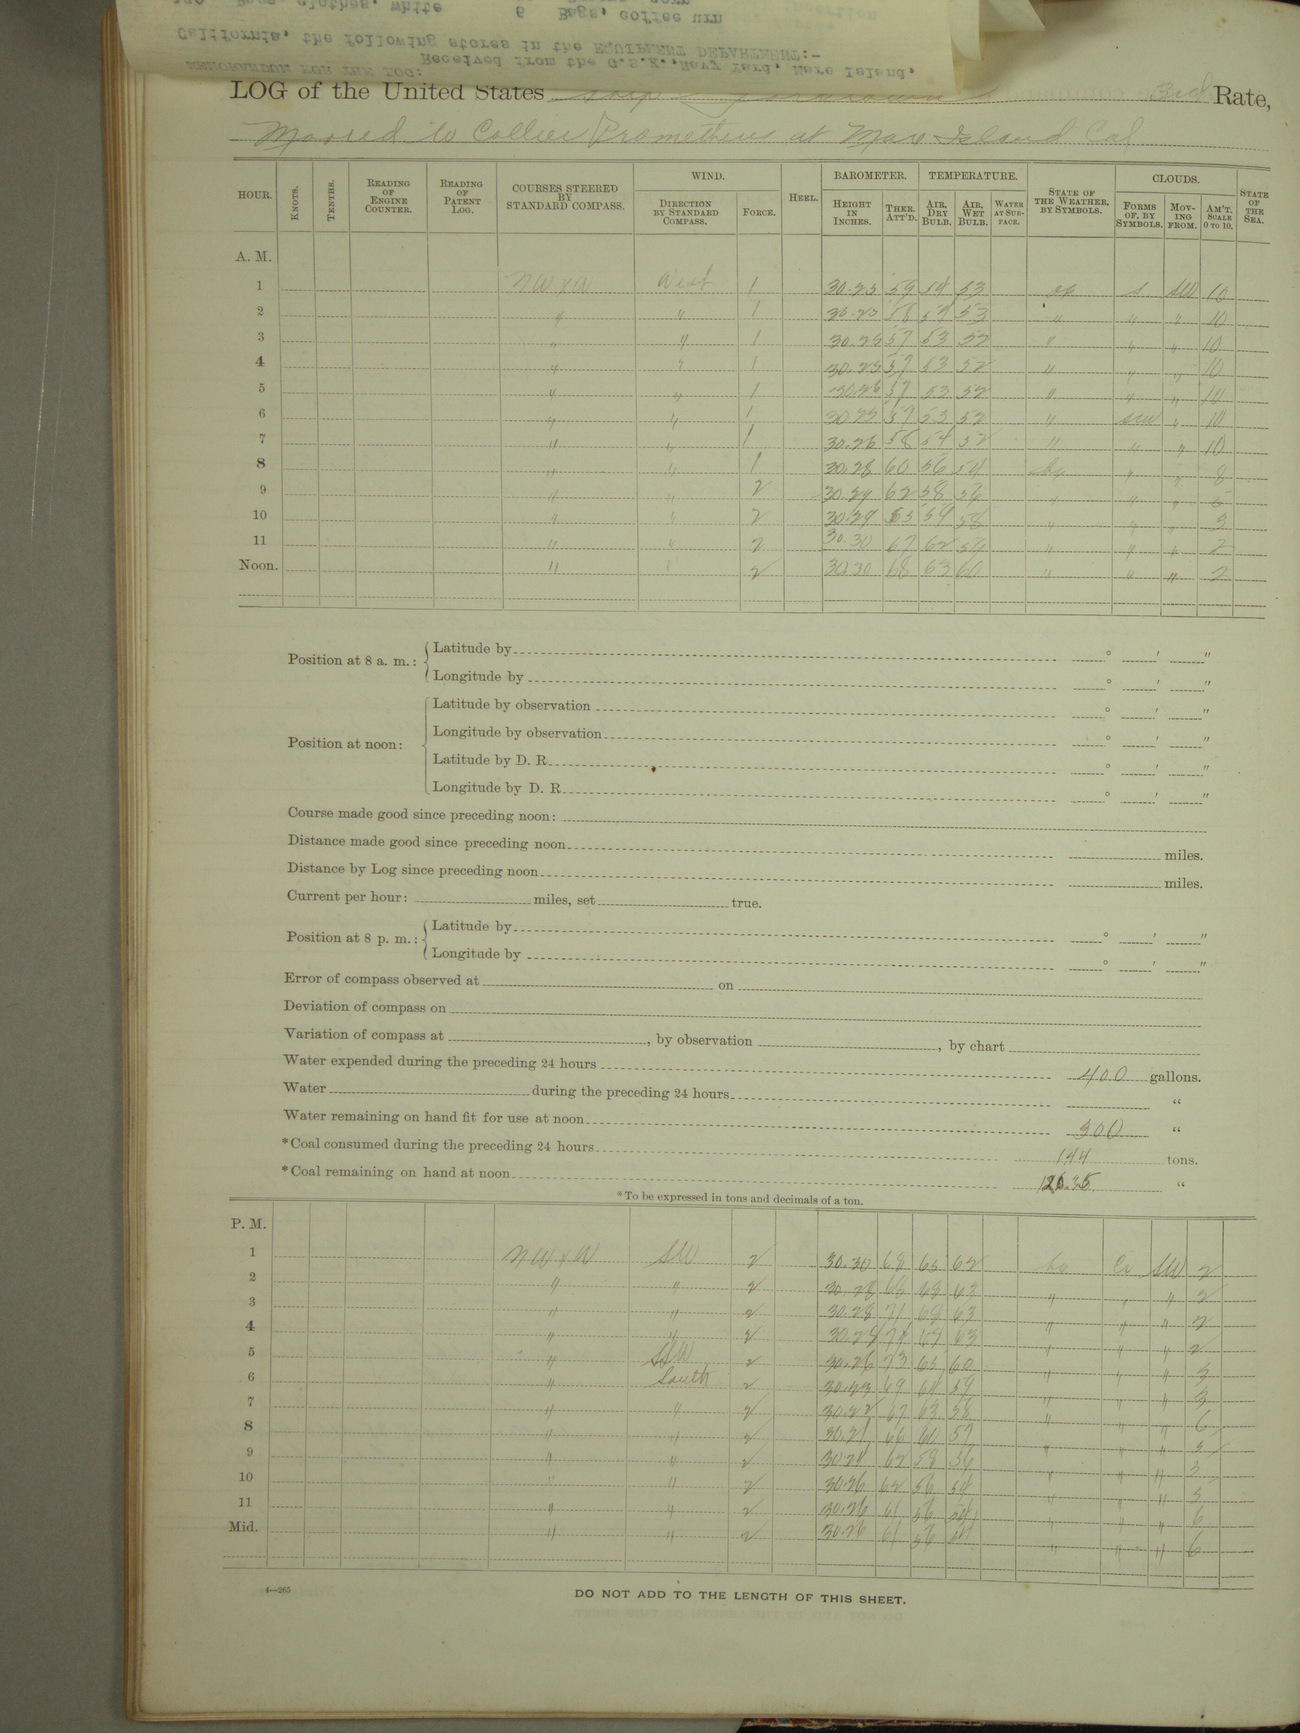 6 Bags, coffee urn
California, the following stores in the EQUIPMENT DEPARTMENT:-
Received from the G.S.K., Navy Yard, Mare Island,
MEMORANDUM FOR THE LOG:
LOG of the United States 3rd Rate,
Moored to Collier Prometheus at Mare Island Cal
HOUR. KNOTS. TENTHS. READING OF ENGINE COUNTER. READING OF PATENT LOG. COURSES STEERED BY STANDARD COMPASS. WIND. DIRECTION BY STANDARD COMPASS. FORCE. HEEL. BAROMETER. HEIGHT IN INCHES. THER. ATT'D. TEMPERATURE. AIR, DRY BULB. AIR, WET BULB. WATER AT SURFACE. STATE OF THE WEATHER, BY SYMBOLS. CLOUDS. FORMS OF, BY SYMBOLS. MOVING FROM. AM'T, SCALE 0 TO 10. STATE OF THE SEA.
A. M.
1 NWxW West 1 30.25 59 54 53 s SW 10
2 " " 1 53 " " " 10
3 " " 1 57 53 52 " " " 10
4 " " 1 30.25 57 53 52 " " " 10
5 " " 1 30.26 57 53 52 " " " 10
6 " " 1 57 53 52 " " 10
7 " " 1 30.26 58 54 52 " " " 10
8 " " 1 30.28 60 56 54 " " 8
9 " " 2 30.29 62 58 56 " " "
10 " " 2 30.29 58 " " " 3
11 " " 2 30.30 67 62 59 " " " 2
Noon. " " 2 30.30 68 63 60 " " " 2
Position at 8 a. m.: Latitude by ° ' "
Longitude by ° ' "
Position at noon: Latitude by observation ° ' "
Longitude by observation ° ' "
Latitude by D. R. ° ' "
Longitude by D. R. ° ' "
Course made good since preceding noon:
Distance made good since preceding noon miles.
Distance by Log since preceding noon miles.
Current per hour: miles, set true.
Position at 8 p. m.: Latitude by ° ' "
Longitude by ° ' "
Error of compass observed at on
Deviation of compass on
Variation of compass at , by observation , by chart
Water expended during the preceding 24 hours 400 gallons.
Water during the preceding 24 hours "
Water remaining on hand fit for use at noon 300 "
*Coal consumed during the preceding 24 hours 1.44 tons.
*Coal remaining on hand at noon "
*To be expressed in tons and decimals of a ton.
P. M.
1 NWxW SW 2 30.30 68 65 62 Ci SW 2
2 " " 2 30.28 68 " " " 2
3 " " 2 30.28 71 68 63 " " " 2
4 " " 2 63 " " " 2
5 " 2 30.26 73 65 60 " " " 3
6 " South 2 69 59 " " " 3
7 " " 2 30.22 67 63 58 " " " 6
8 " " 2 30.21 66 60 57 " " " 3
9 " " 2 62 58 56 " " " 3
10 " " 2 30.26 62 56 54 " " " 5
11 " " 2 30.26 61 56 " " " 6
Mid. " " 2 30.26 61 56 " " " 6
4—265
DO NOT ADD TO THE LENGTH OF THIS SHEET.